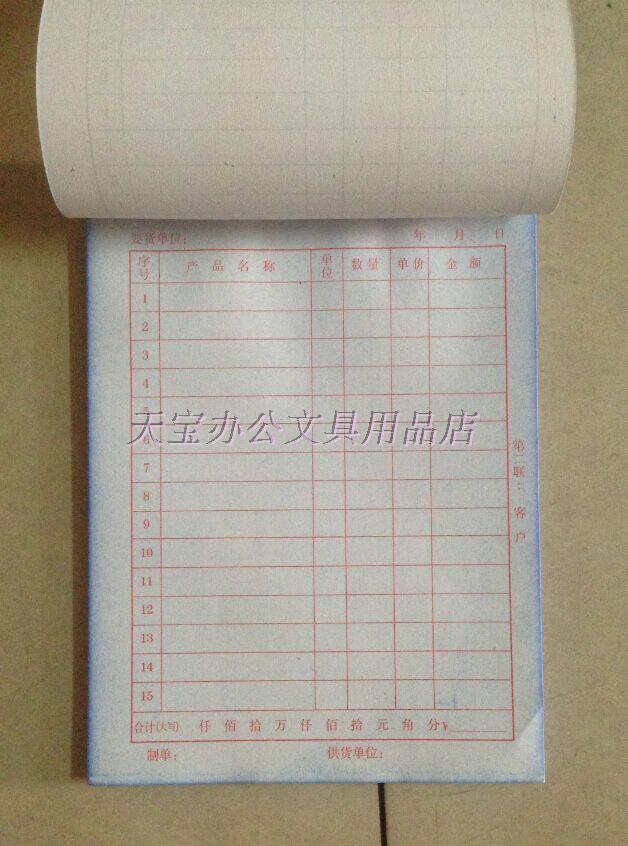 要货单位: 年 月 日
序号 产品名称 单位 数量 单价 金额
1
2
3
4
5
天宝办公文具用品店
6
7
8
9
10
11
12
13
14
15
第二联: 客户
合计(大写) 仟 佰 拾 万 仟 佰 拾 元 角 分 ¥
制单: 供货单位: